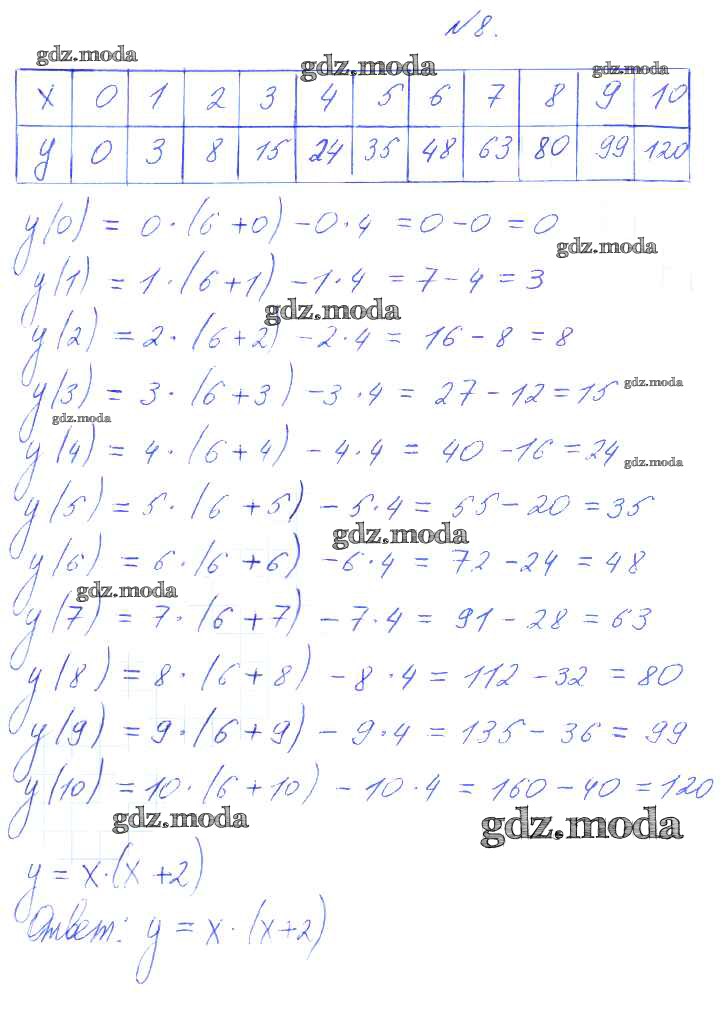 № 8.
gdz.moda gdz.moda gdz.moda
x 0 1 2 3 4 5 6 7 8 9 10
y 0 3 8 15 24 35 48 63 80 99 120
y(0) = 0·(6+0) - 0·4 = 0 - 0 = 0
gdz.moda
y(1) = 1·(6+1) - 1·4 = 7 - 4 = 3
gdz.moda
y(2) = 2·(6+2) - 2·4 = 16 - 8 = 8
y(3) = 3·(6+3) - 3·4 = 27 - 12 = 15 gdz.moda
gdz.moda
y(4) = 4·(6+4) - 4·4 = 40 - 16 = 24 gdz.moda
y(5) = 5·(6+5) - 5·4 = 55 - 20 = 35
gdz.moda
y(6) = 6·(6+6) - 6·4 = 72 - 24 = 48
gdz.moda
y(7) = 7·(6+7) - 7·4 = 91 - 28 = 63
y(8) = 8·(6+8) - 8·4 = 112 - 32 = 80
y(9) = 9·(6+9) - 9·4 = 135 - 36 = 99
y(10) = 10·(6+10) - 10·4 = 160 - 40 = 120
gdz.moda gdz.moda
y = x·(x+2)
Ответ: y = x·(x+2)